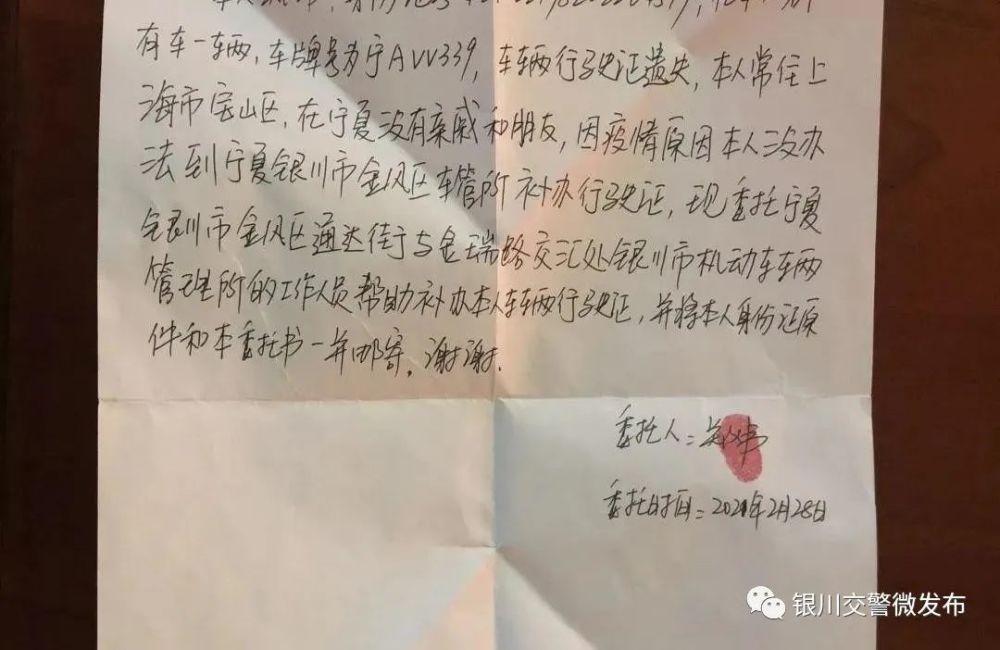 有车一辆，车牌号为宁AVV339，车辆行驶证遗失，本人常住上
海市宝山区，在宁夏没有亲戚和朋友，因疫情原因本人没办
法到宁夏银川市金凤区车管所补办行驶证，现委托宁夏
银川市金凤区通达街与金瑞路交汇处银川市机动车车辆
管理所的工作人员帮助补办本人车辆行驶证，并将本人身份证原
件和本委托书一并邮寄。谢谢.
委托人：
委托时间：2021年2月28日
银川交警微发布